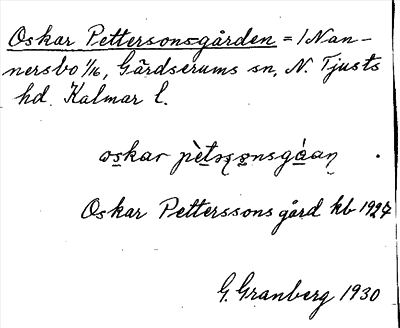 Oskar Pettersonsgården = /Nan-
nersbo 1/16, Gärdserums sn, N. Tjusts
hd. Kalmar l.
oskar
Oskar Petterssons gård kb 1927
G. Granberg 1930